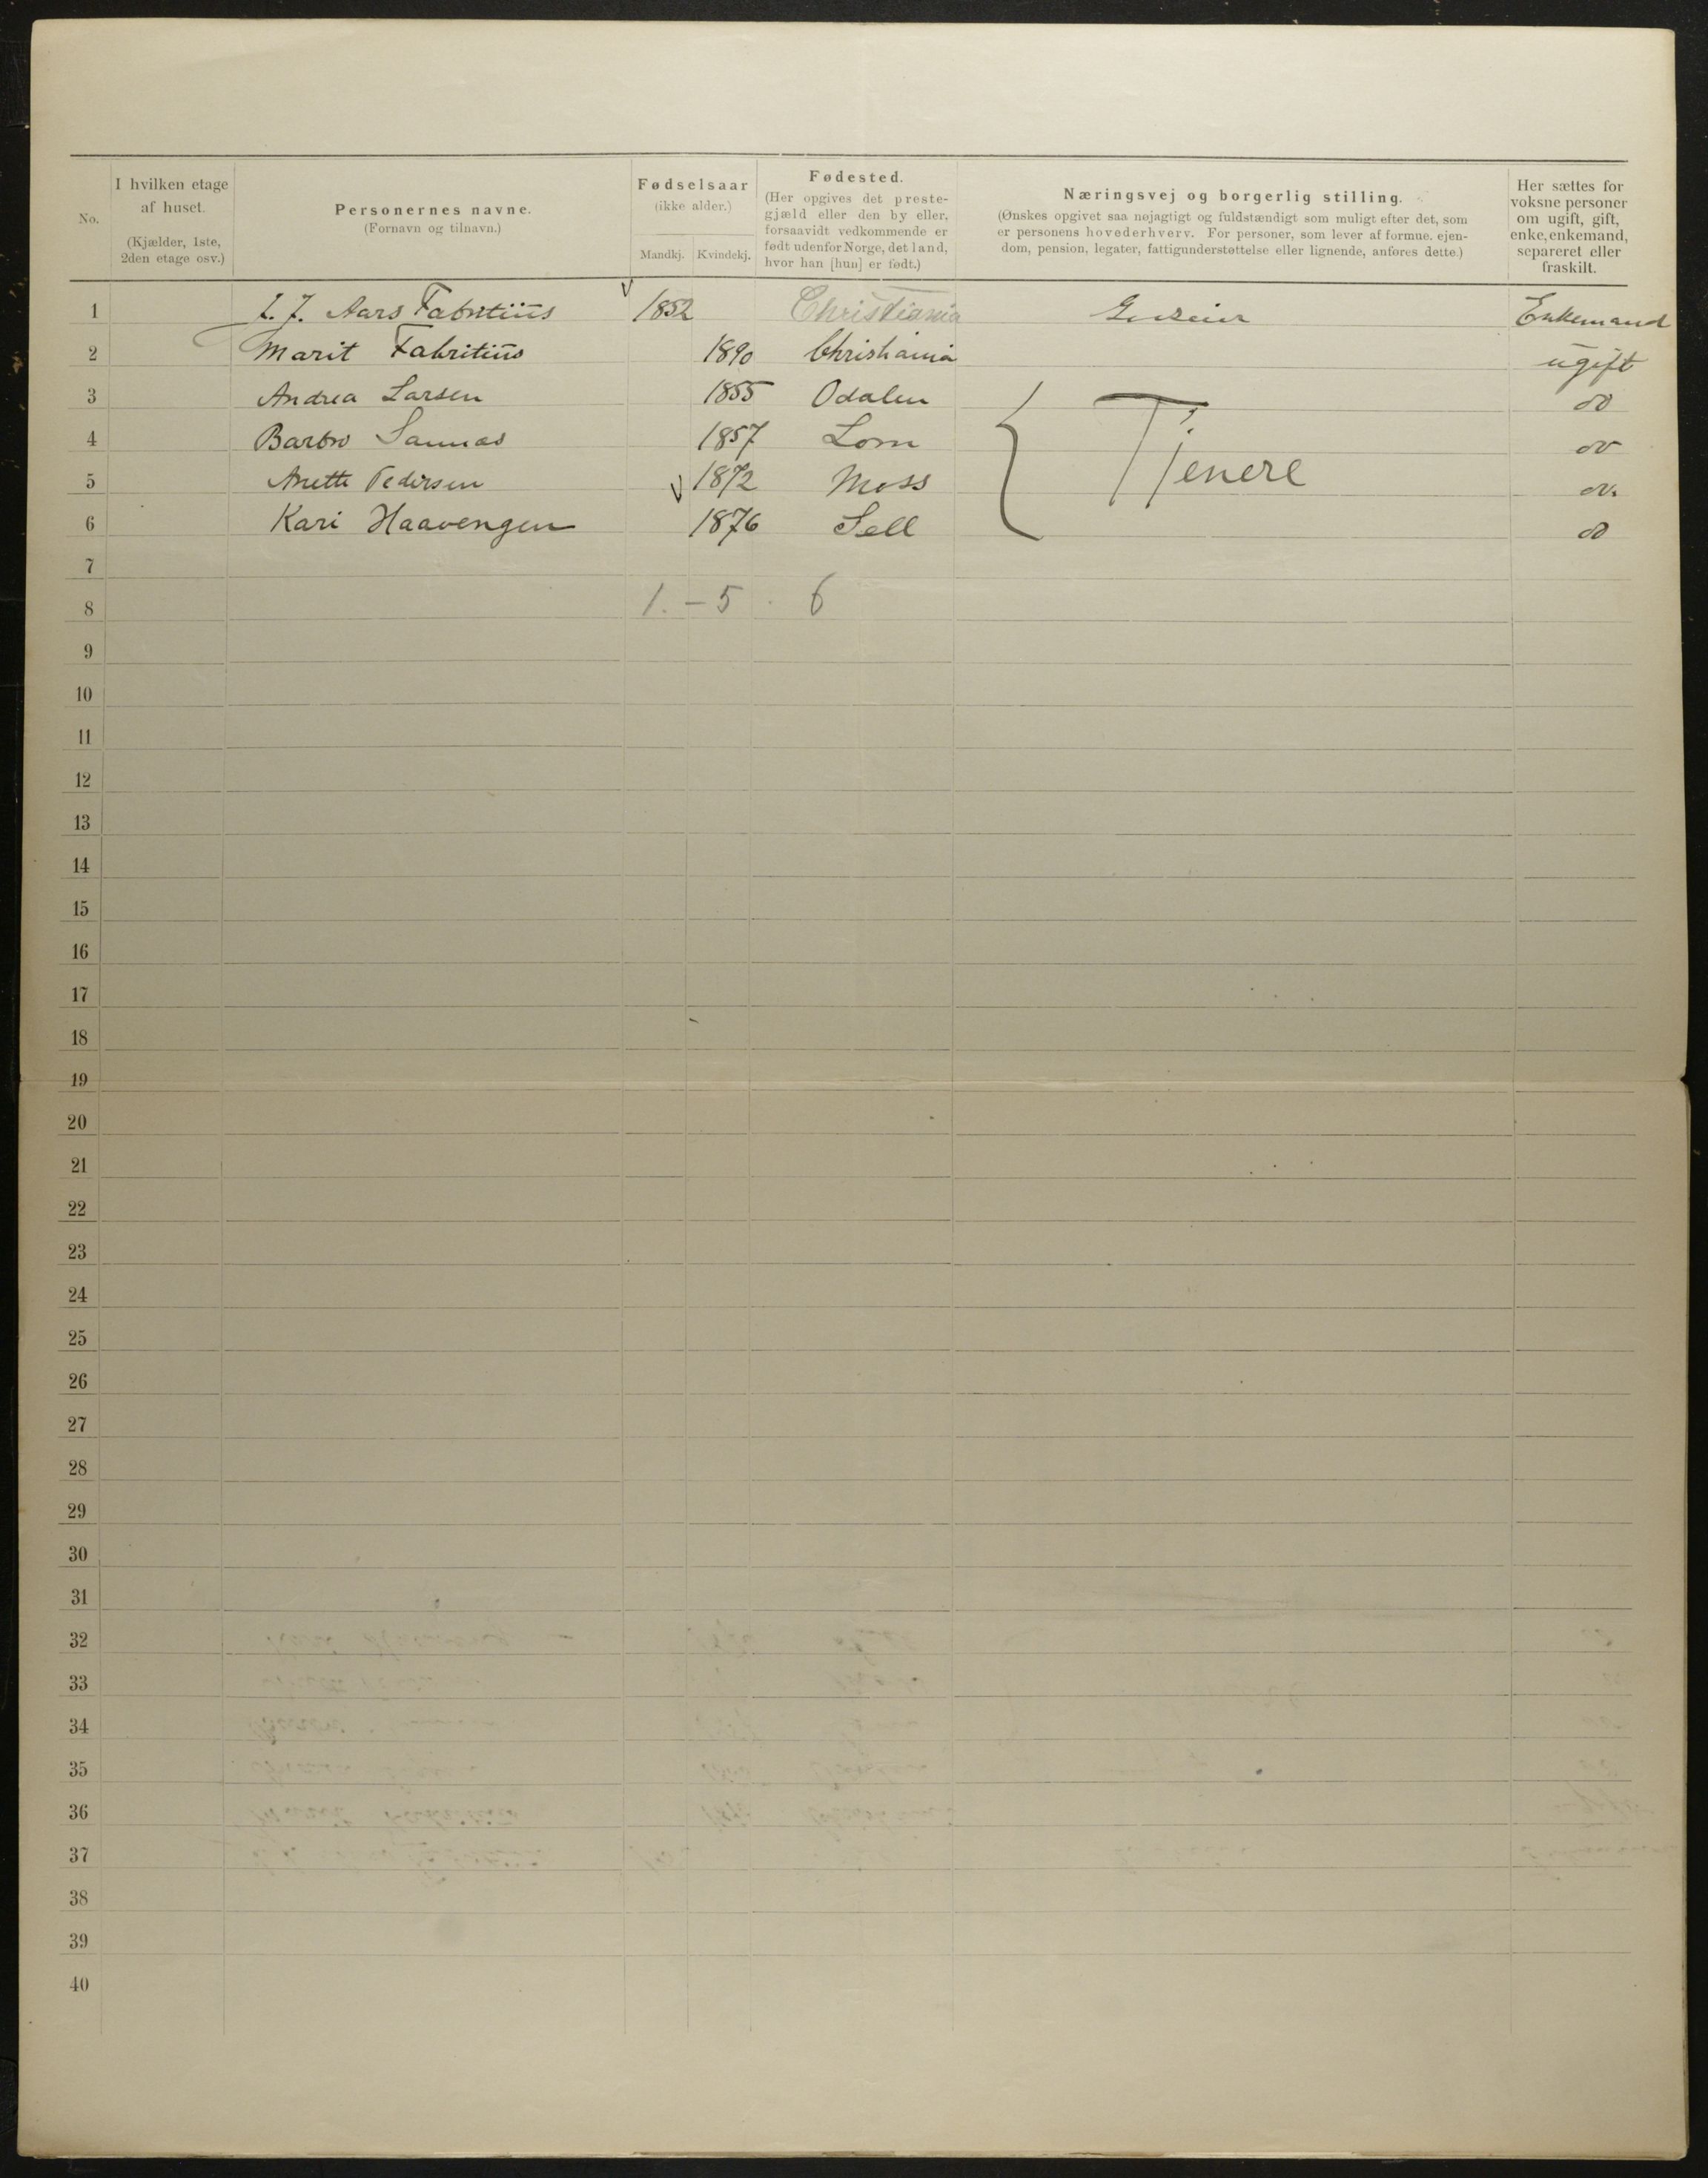 No.
I hvilken etage
af huset.
(Kjælder, 1ste,
2den etage osv.)
Personernes navne.
(Fornavn og tilnavn.)
Fødselsaar
(ikke alder.)
Mandkj. Kvindekj.
Fødested.
(Her opgives det preste-
gjæld eller den by eller,
forsaavidt vedkommende er
født udenfor Norge, det land,
hvor han [hun] er født.)
Næringsvej og borgerlig stilling.
(Ønskes opgivet saa nøjagtigt og fuldstændigt som muligt efter det, som
er personens hovederhverv. For personer, som lever af formue, ejen-
dom, pension, legater, fattigunderstøttelse eller lignende, anføres dette.)
Her sættes for
voksne personer
om ugift, gift,
enke, enkemand,
separeret eller
fraskilt.
1 Aars Fabritius 1852 Christiania Enkemand
2 Marit Fabritius 1890 Christiania ugift
3 Andrea Larsen 1855 Odalen do
4 Barbro 1857 Lom do
5 Anette Pedersen 1872 Moss do.
6 Kari Haavengen 1876 Sell do
Tjenere
7
8 1. – 5 . 6
9
10
11
12
13
14
15
16
17
18
19
20
21
22
23
24
25
26
27
28
29
30
31
32
33
34
35
36
37
38
39
40